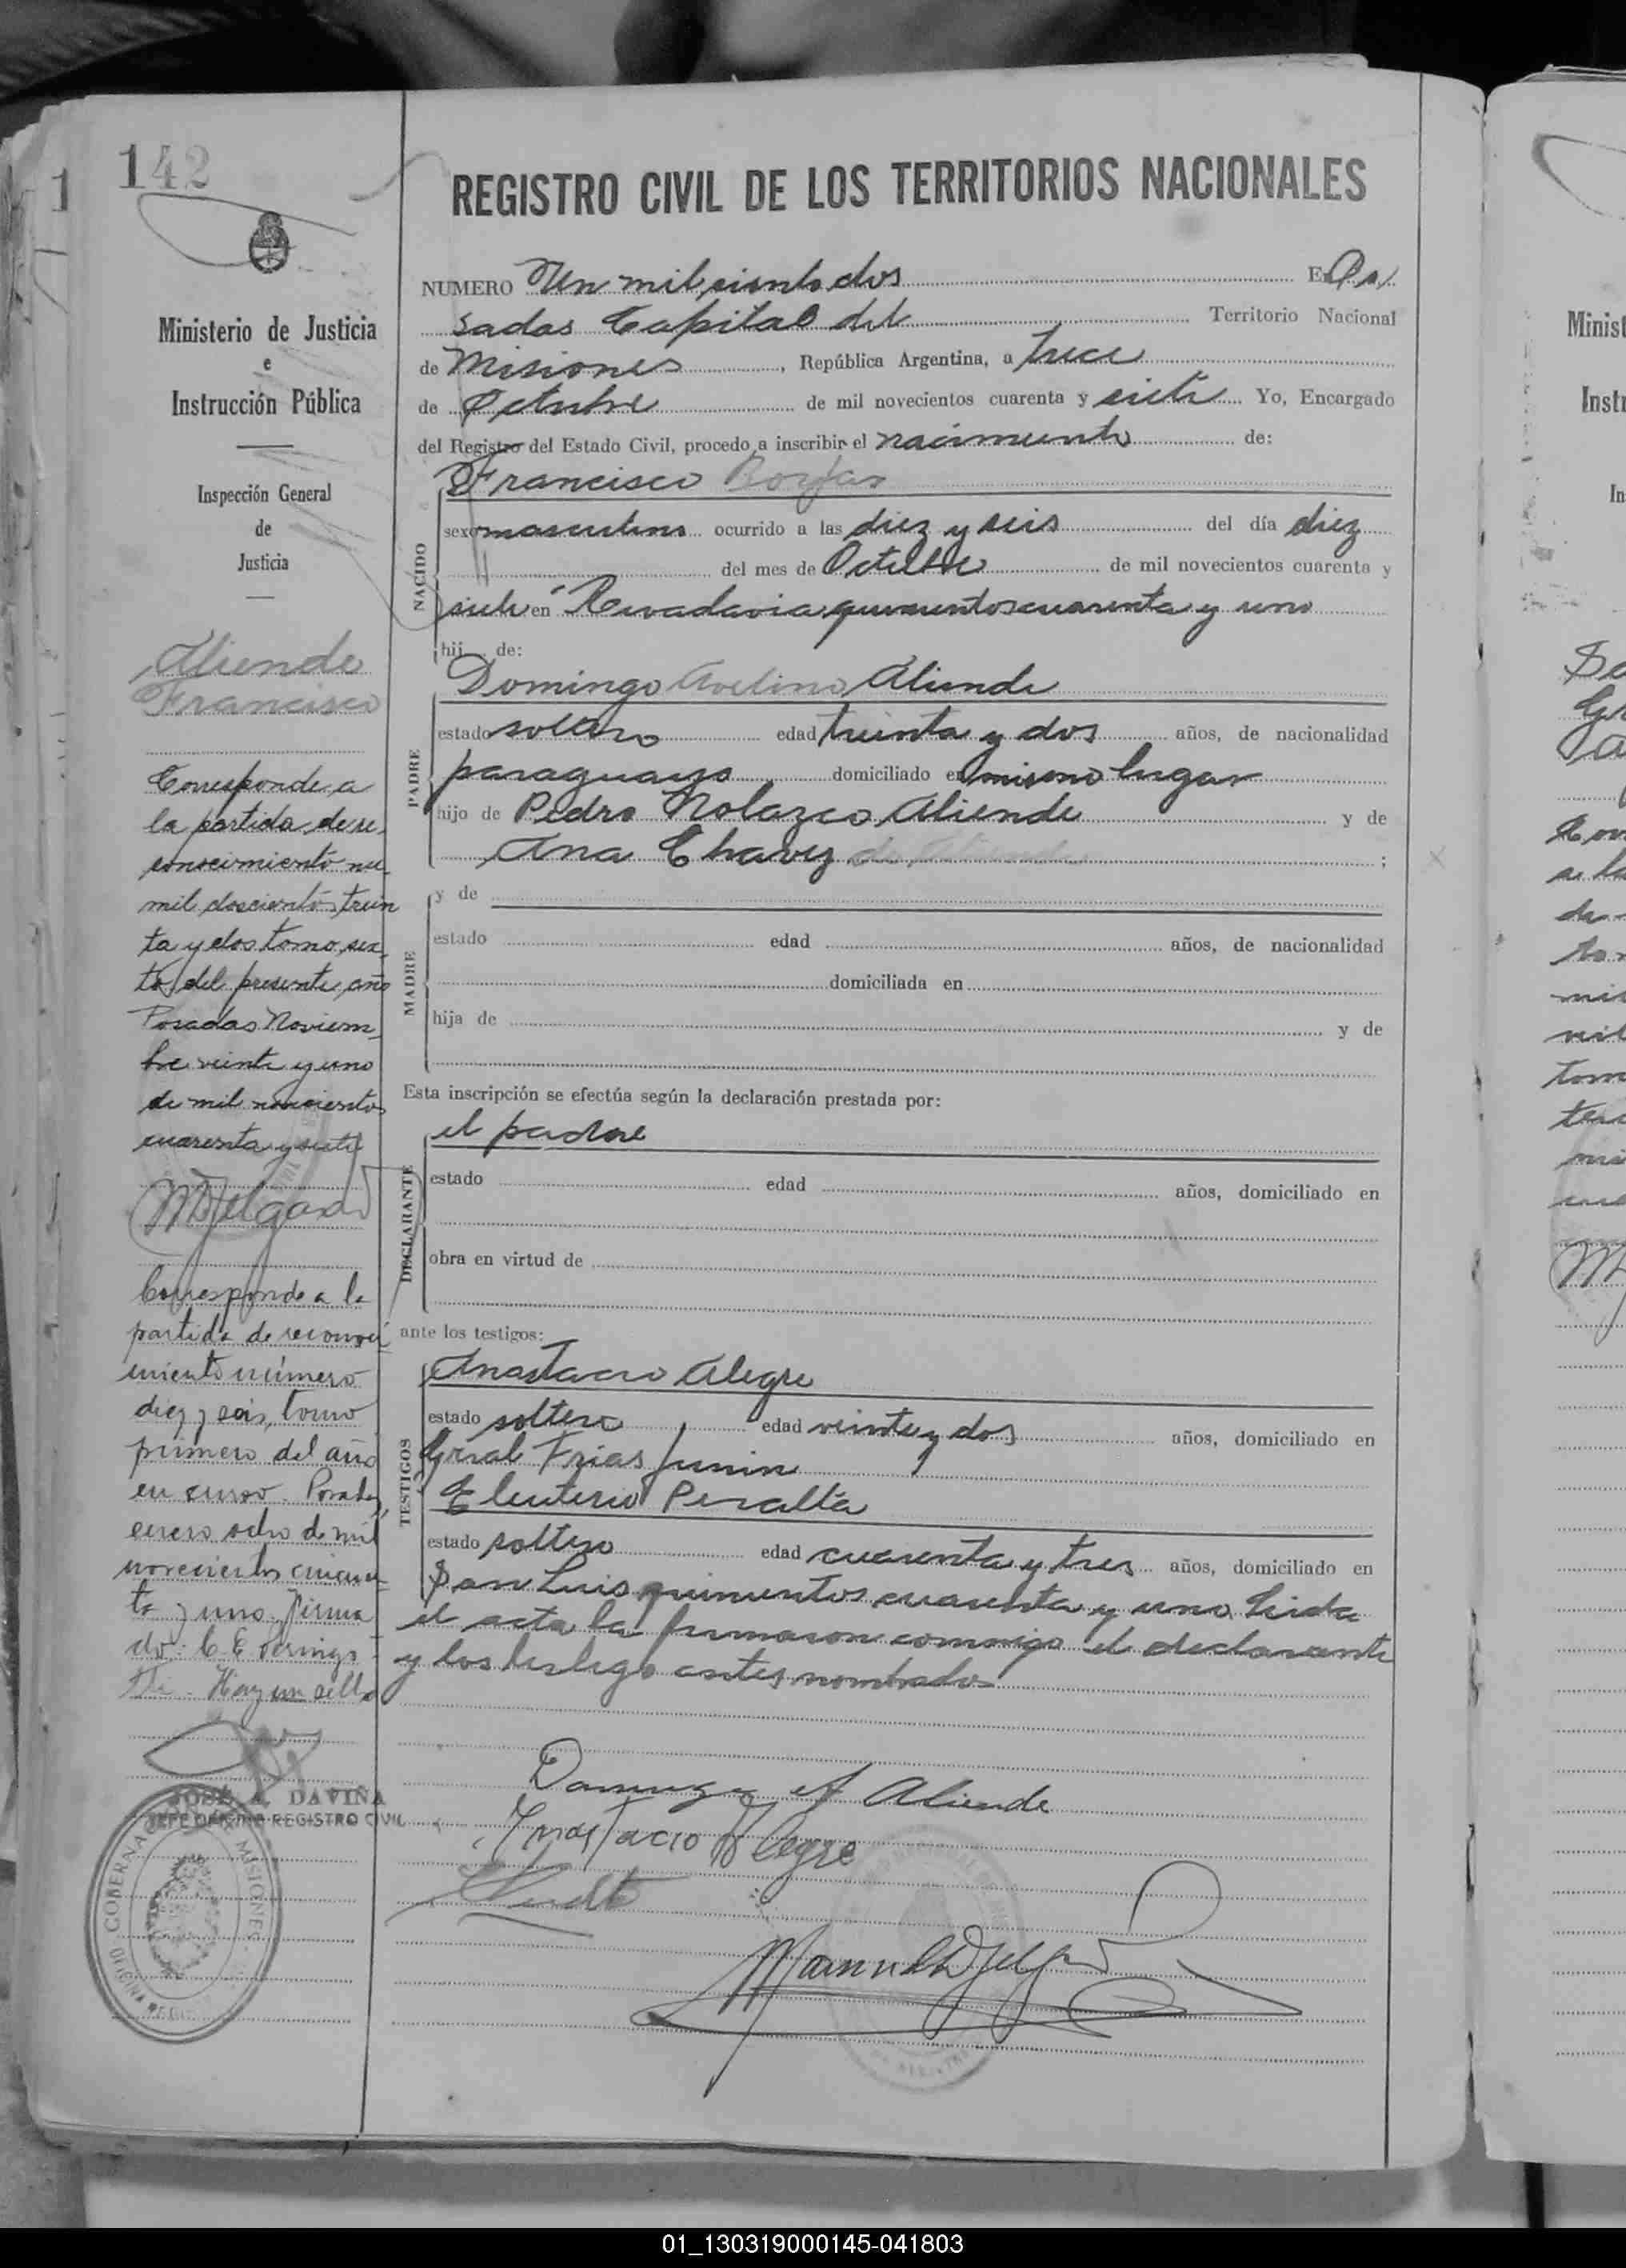 142
Ministerio de Justicia
e
Instrucción Pública
Inspección General
de
Justicia
Aliende
Francisco
Corresponde a
la partida de re-
conocimiento nu-
mil doscientos trein
ta y dos tomo sex-
to del presente año
Posadas Noviem-
bre veinte y uno
de mil novecientos
cuarenta y siete
Corresponde a la
partida de reconoci
miento número
diez y seis, tomo
primero del año
en curso. Posadas,
enero ocho de mil
novecientos cincuen-
ta y uno. Firma
do: C. E.
Hay un sello
JOSE A. DAVIÑA
JEFE OFICINA REGISTRO CIVIL
GOBERNA MISIONES
OFICINA REGIS
REGISTRO CIVIL DE LOS TERRITORIOS NACIONALES
NUMERO Un mil ciento dos En Po/
sadas Capital del Territorio Nacional
de Misiones, República Argentina, a trece
de Octubre de mil novecientos cuarenta y siete Yo, Encargado
del Registro del Estado Civil, procedo a inscribir el nacimiento de:
Francisco Borjas
NACIDO
sexo masculino ocurrido a las diez y seis del día diez
del mes de Octubre de mil novecientos cuarenta y
siete en Rivadavia quinientos cuarenta y uno
hij de:
Domingo Avelino Aliende
PADRE
estado soltero edad treinta y dos años, de nacionalidad
paraguayo domiciliado en mismo lugar
hijo de Pedro Nolazco Aliende y de
Ana Chavez de Aliende ;
y de
MADRE
estado edad años, de nacionalidad
domiciliada en
hija de y de
Esta inscripción se efectúa según la declaración prestada por:
el padre
DECLARANTE
estado edad años, domiciliado en
obra en virtud de
ante los testigos:
Anastacio Alegre
TESTIGOS
estado soltero edad veinte y dos años, domiciliado en
Gral Frias Junin
Eleuterio Peralta
estado soltero edad cuarenta y tres años, domiciliado en
San Luis quinientos cuarenta y uno Leida
el acta la firmaron conmigo el declarante
y los testigo antes nombrados
Domingo A Aliende
Anastacio Alegre
01_130319000145-041803